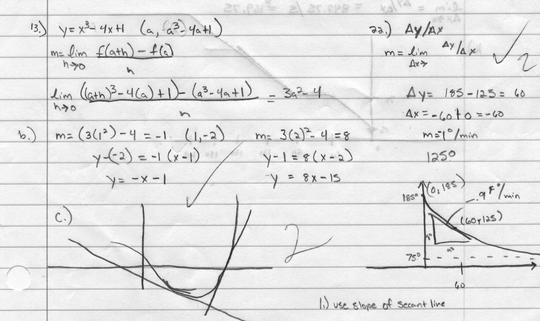 13.) y = x³ - 4x + 1 (a, a³ - 4a + 1)
m = lim h→0 f(a+h) - f(a) / h
lim h→0 ((a+h)³ - 4(a) + 1) - (a³ - 4a + 1) / h = 3a² - 4
b.) m = (3(1²) - 4 = -1 (1, -2) m = 3(2)² - 4 = 8
y - (-2) = -1(x - 1) y - 1 = 8(x - 2)
y = -x - 1 y = 8x - 15
c.)
2
22.) Δy/Δx
m = lim Δx→ Δy/Δx
2
Δy = 185 - 125 = 60
Δx = -60 + 0 = -60
m = 1°/min
125°
185° (0, 185)
.9 F°/min
(60, 125)
75°
60
1.) use slope of secant line